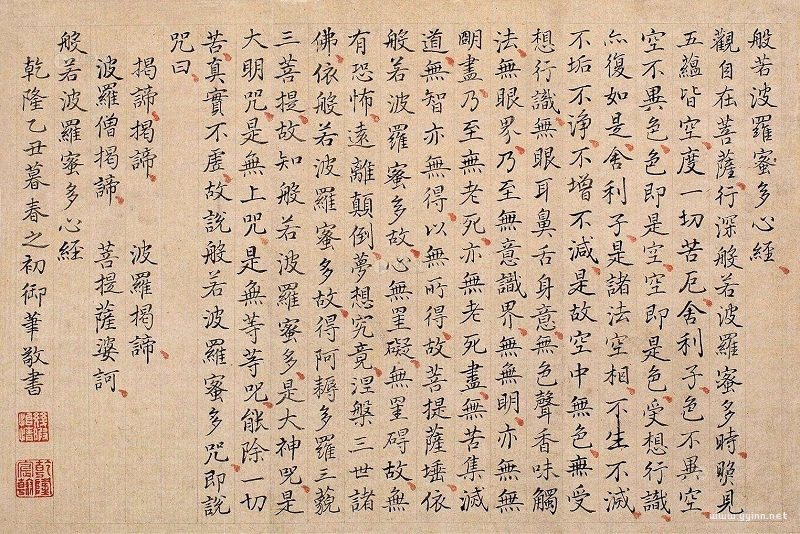 般若波羅蜜多心經
觀自在菩薩行深般若波羅蜜多時照見
五蘊皆空度一切苦厄舍利子色不異空
空不異色色即是空空即是色受想行識
亦復如是舍利子是諸法空相不生不滅
不垢不淨不增不減是故空中無色無受
想行識無眼耳鼻舌身意無色聲香味觸
法無眼界乃至無意識界無無明亦無無
明盡乃至無老死亦無老死盡無苦集滅
道無智亦無得以無所得故菩提薩埵依
般若波羅蜜多故心無罣礙無罣碍故無
有恐怖遠離顛倒夢想究竟涅槃三世諸
佛依般若波羅蜜多故得阿耨多羅三藐
三菩提故知般若波羅蜜多是大神咒是
大明咒是無上咒是無等等咒能除一切
苦真實不虛故說般若波羅蜜多咒即說
咒曰
揭諦揭諦　波羅揭諦
波羅僧揭諦　菩提薩婆訶
般若波羅蜜多心經
乾隆乙丑暮春之初御筆敬書
幾暇怡情
乾隆宸翰
www.gyinn.net